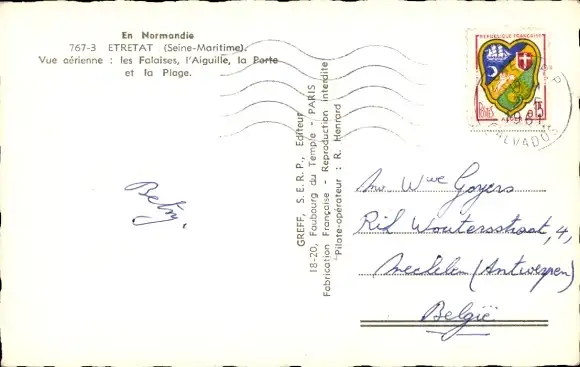 En Normandie
767-3 ETRETAT (Seine-Maritime).
Vue aérienne : les Falaises, l'Aiguille, la Porte
et la Plage.
GREFF, S. E. R. P., Editeur
18-20, Faubourg du Temple - PARIS
Fabrication Française - Reproduction interdite
Pilote-opérateur : R. Henrard
REPUBLIQUE FRANÇAISE
POSTES
ALGER
0.15
CALVADOS
Betsy.
Wwe Goyers
Rik Woutersstraat, 4,
Mechelen (Antwerpen)
België